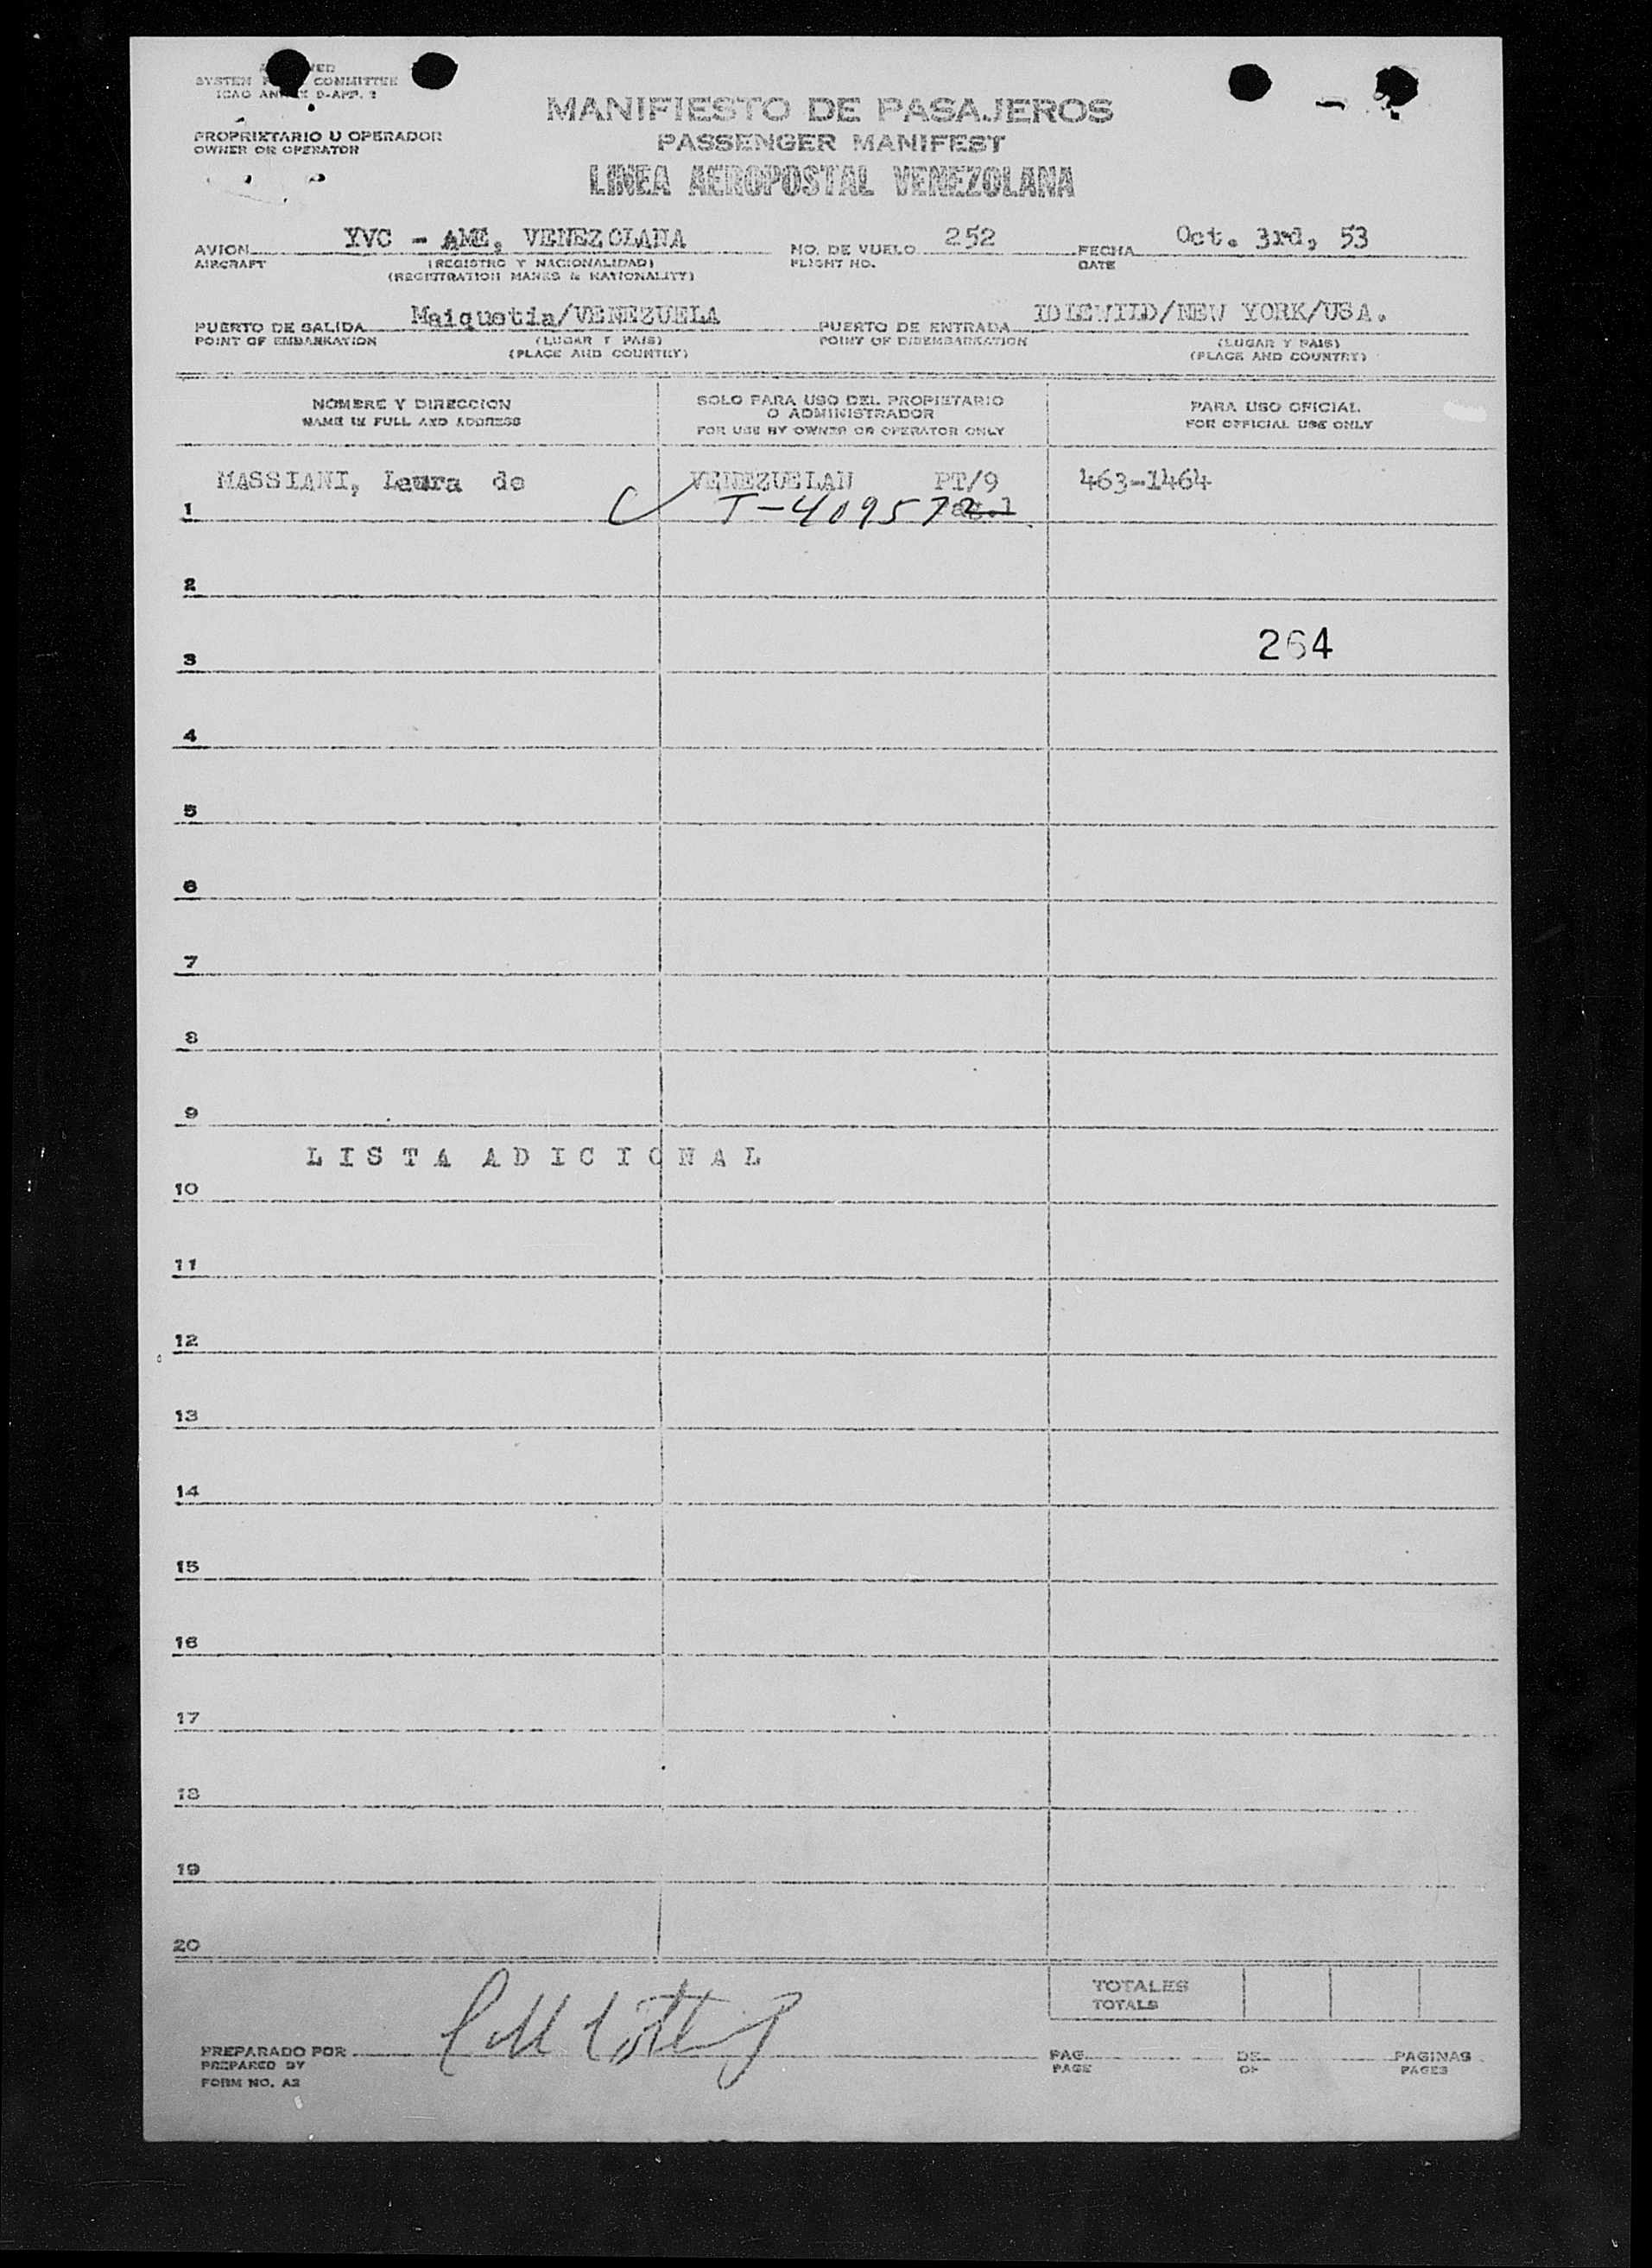 SYSTEM COMMITTEE
ICAO ANNEX 9-APP. 3
PROPRIETARIO U OPERADOR
OWNER OR OPERATOR
MANIFIESTO DE PASAJEROS
PASSENGER MANIFEST
LINEA AEROPOSTAL VENEZOLANA
AVION YVC - AME, VENEZOLANA NO. DE VUELO 252 FECHA Oct. 3rd, 53
AIRCRAFT (REGISTRO Y NACIONALIDAD) FLIGHT NO. DATE
(REGISTRATION MARKS & NATIONALITY)
PUERTO DE SALIDA Maiquetia/VENEZUELA PUERTO DE ENTRADA IDLEWILD/NEW YORK/USA.
POINT OF EMBARKATION (LUGAR Y PAIS) POINT OF DISEMBARKATION (LUGAR Y PAIS)
(PLACE AND COUNTRY) (PLACE AND COUNTRY)
NOMBRE Y DIRECCION SOLO PARA USO DEL PROPIETARIO O ADMINISTRADOR PARA USO OFICIAL
NAME IN FULL AND ADDRESS FOR USE BY OWNER OR OPERATOR ONLY FOR OFFICIAL USE ONLY
MASSIANI, Laura de VENEZUELAN PT/9 463-1464
1 T-409572
2
264
3
4
5
6
7
8
9
LISTA ADICIONAL
10
11
12
13
14
15
16
17
18
19
20
TOTALES
TOTALS
PREPARADO POR PAG. DE PAGINAS
PREPARED BY PAGE OF PAGES
FORM NO. A2